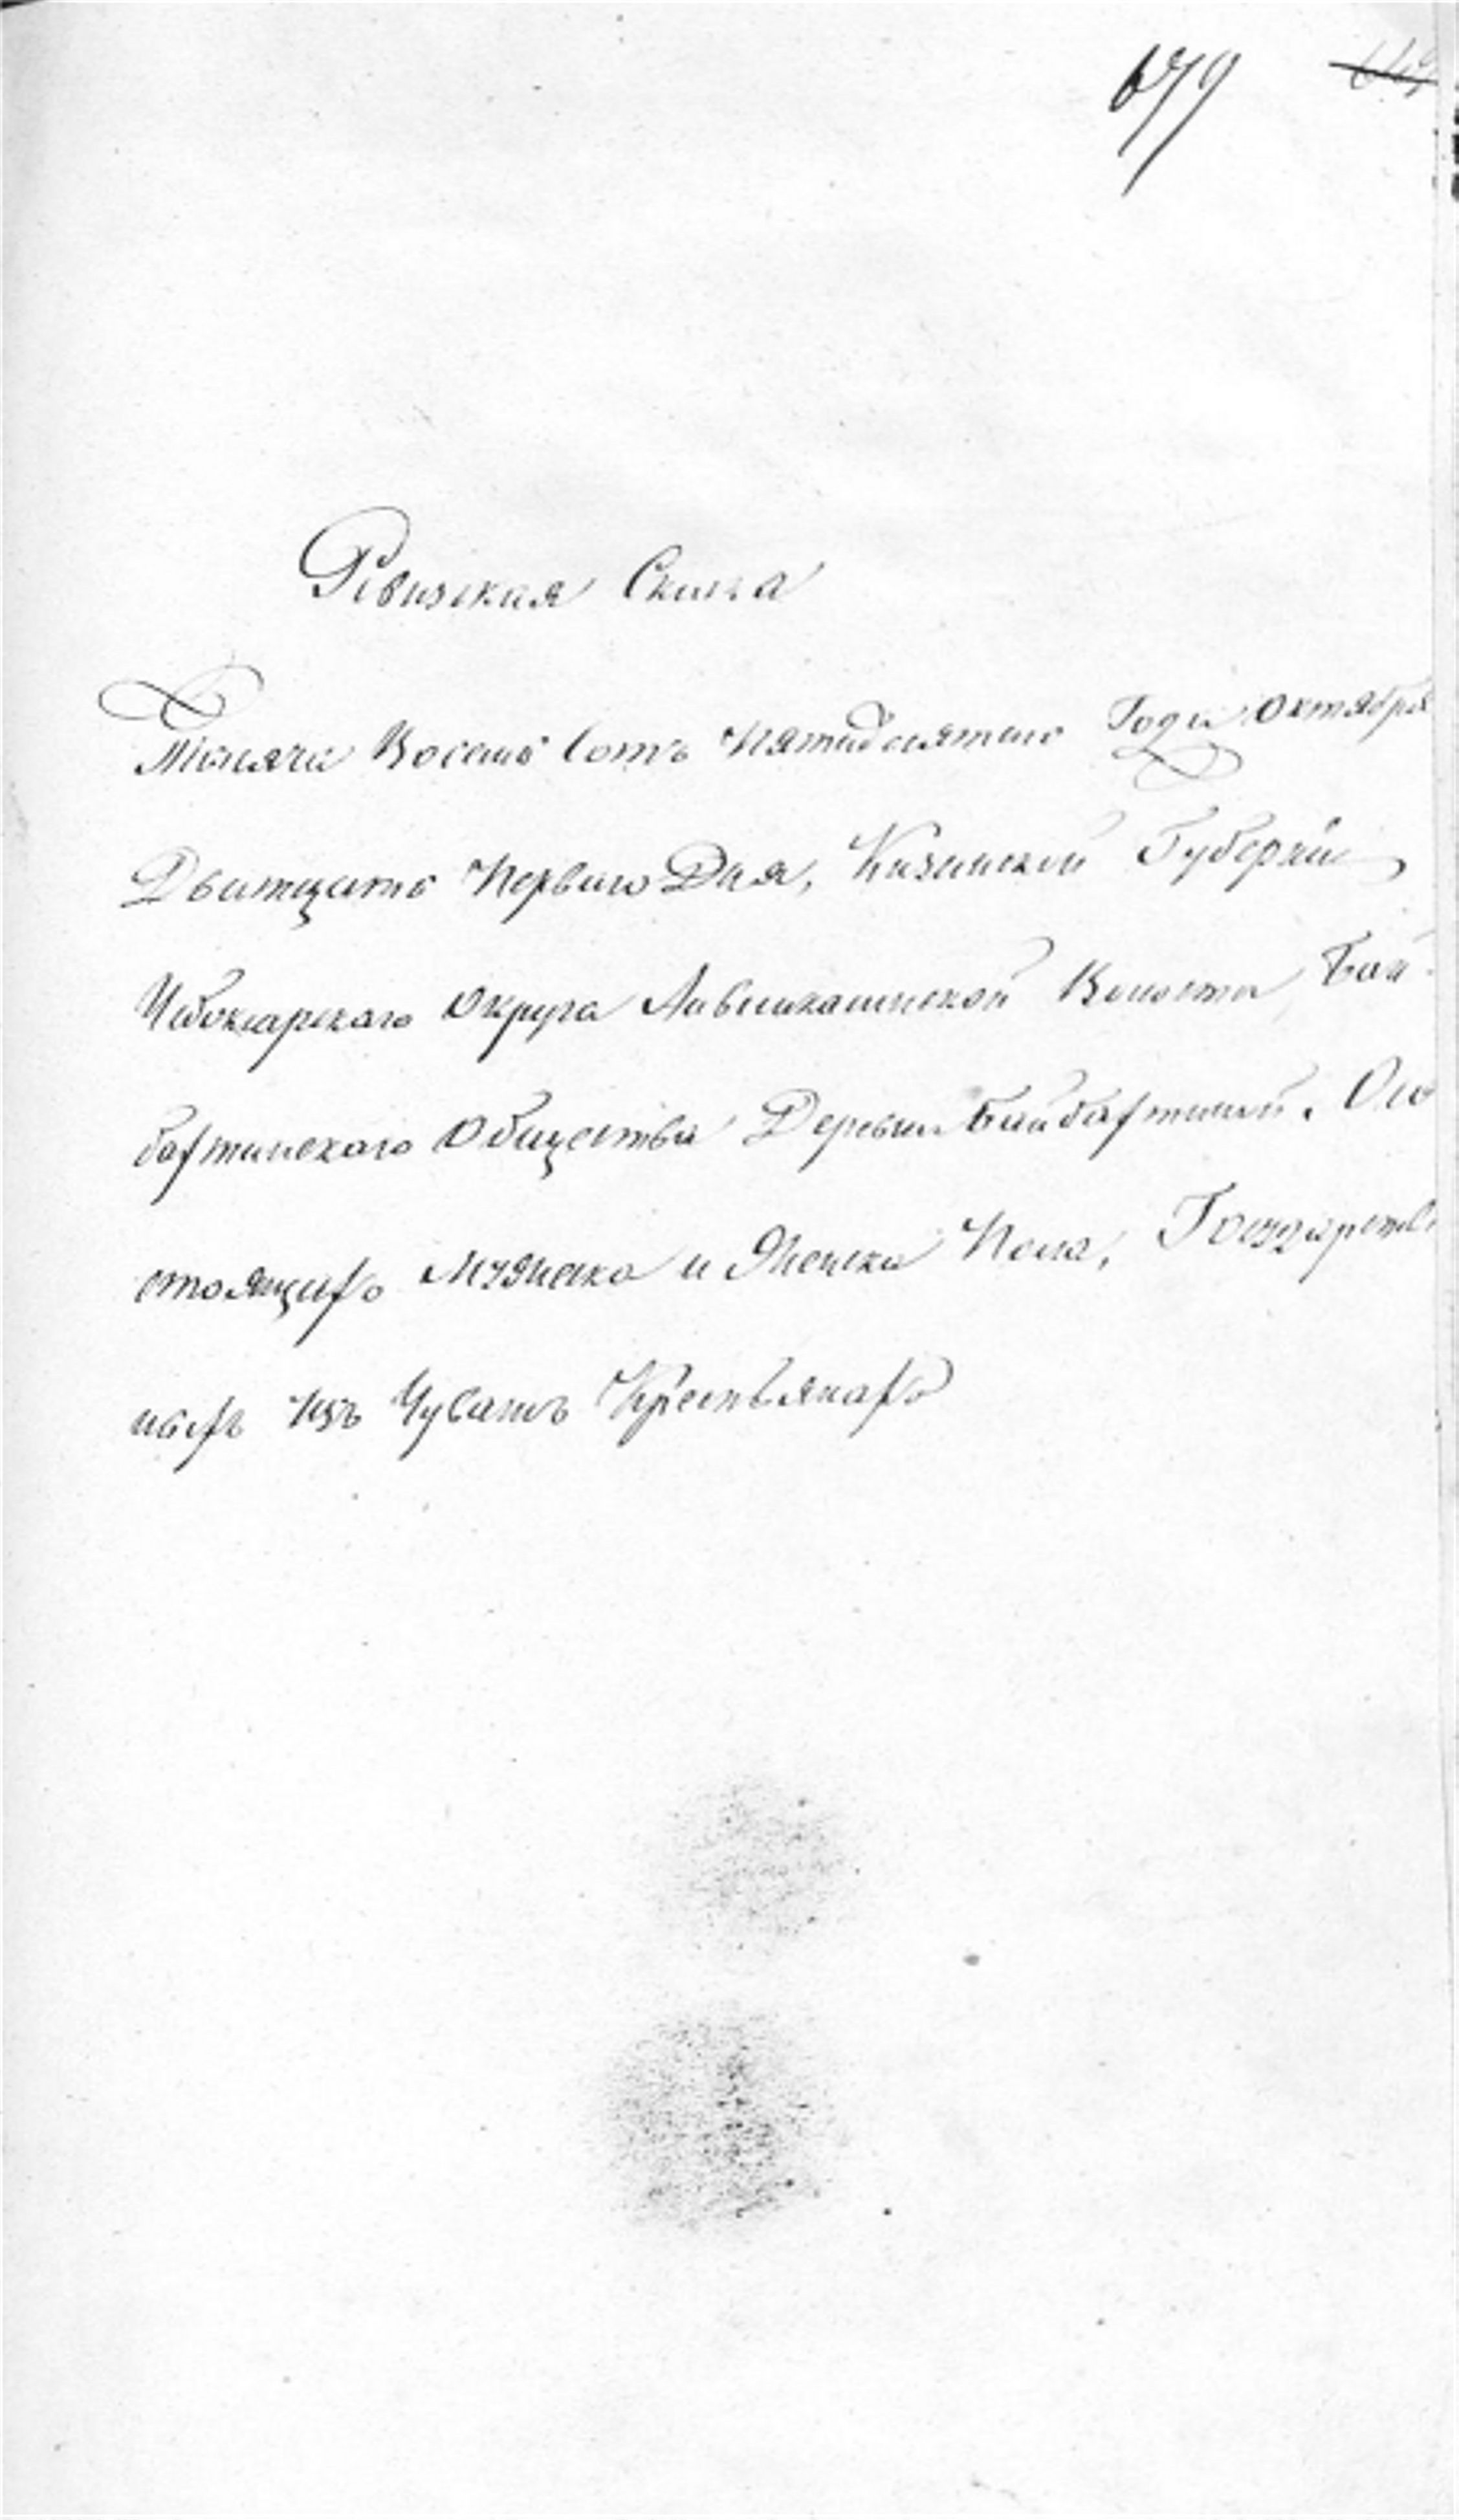 679
Ревизская Скаска
Тысяча Восемь Сотъ Пятидесятаго Года Октября
Дватцать Перваго Дня, Казанской Губернiи
Чебоксарскаго Округа Волости Бай-
бахтинскаго Общества Деревни Байбахтиной. О со
стоящихъ Мужеска и Женска Пола, Государствен
ныхъ Изъ Чувашъ Крестьянахъ